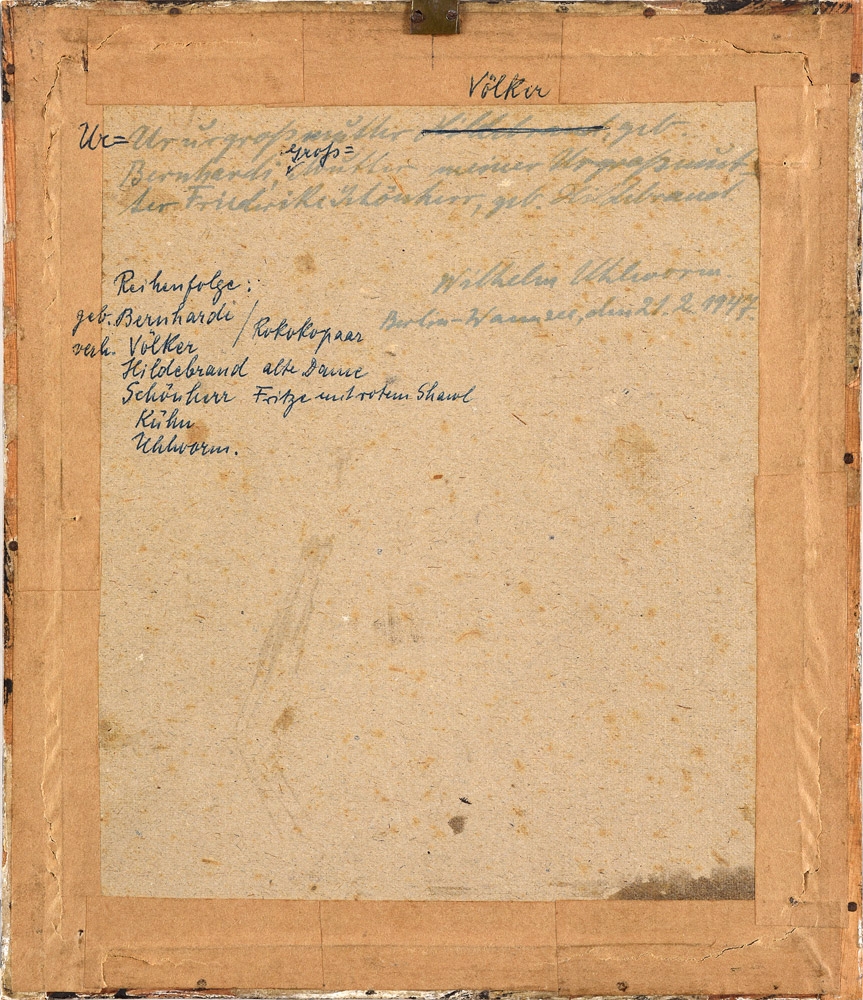 Völker
Ur= Ururgroßmutter Hildebrand, geb.
Groß=
Bernhardi, Mutter meiner Urgroßmut-
ter Friederike Schönherr, geb. Hildebrand
Wilhelm Uhlworm.
Berlin-Wannsee, den 21.2.1947.
Reihenfolge:
geb. Bernhardi
verh. Völker / Rokokopaar
Hildebrand alte Dame
Schönherr Fritze mit rotem Shawl
Kühn
Uhlworm.